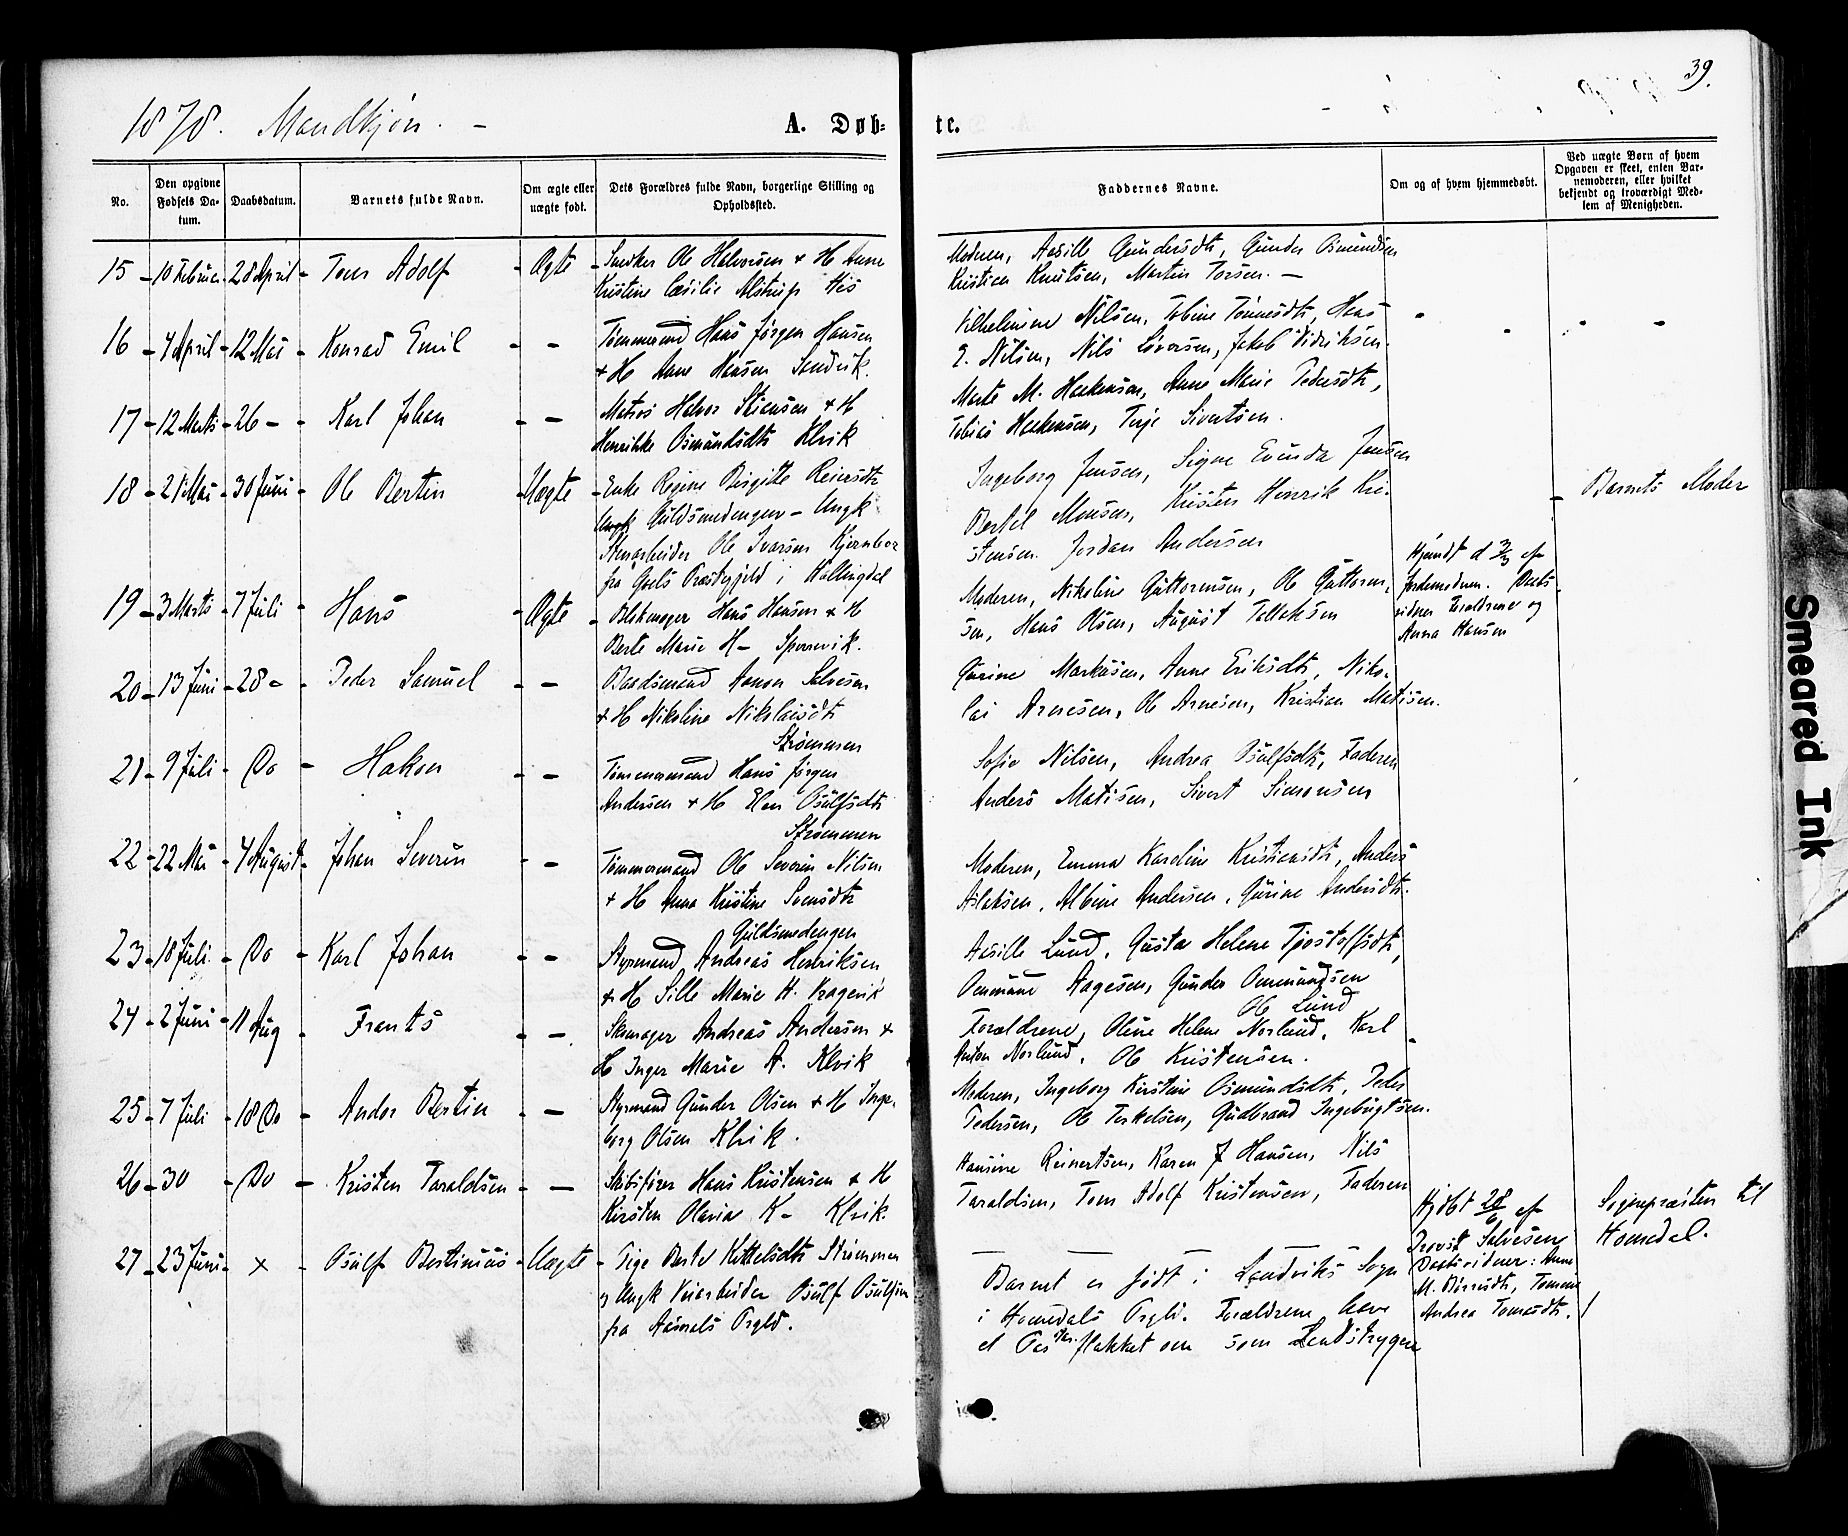 39.
1878. Mandkjøn. -
A. Døb-
te.
No.
Den opgivne Fødsels Datum.
Daabsdatum.
Barnets fulde Navn.
Om ægte eller uægte født.
Dets Forældres fulde Navn, borgerlige Stilling og Opholdssted.
Faddernes Navne.
Om og af hvem hjemmedøbt.
Ved uægte Børn af hvem Opgaven er skeet, enten Barnemoderen, eller hvilket bekjendt og troværdigt Medlem af Menigheden.
15 - 10 Februar - 28 April - Tom Adolf - Ægte - Snedker Ole Halvorsen + H Anne
Kristine Cæsilie Alstrup His
Moderen, Aasille Gundersdtr, Gunder Osmundsen
Kristian Knutsen, Martin Torsen. -
16 - 4 April - 12 Mai - Konrad Emil - - Tømmermand Hans Jørgen Hansen
+ H Anne Hansen Sandvik.
Vilhelmine Nilsen, Tobine Tønnesdtr, Hans
E. Nilsen, Nils Siversen, Jakob Didriksen.
17 - 12 Marts - 26 - - Karl Johan - - Matros Halvor Stiansen + H
Henrikke Osmundsdtr Klvik
Marte M. Haakensen, Anne Marie Pedersdtr,
Tobias Haakensen, Terje Sivertsen.
18 - 21 Mai - 30 Juni - Ole Bertin - Uægte - Enke Regine Birgitte Reiersdtr
Guldsmedengen - Ungk
Stenarbeider Ole Ivarsen
fra Goels Præstegjeld i Hallingdal
Ingeborg Jensen, Signe Evinda Jensen
Bertel Monsen, Kristen Henrik Kri-
stensen. Jordan Andersen
- Barnets Moder
19 - 3 Marts - 7 Juli - Hans - Ægte - Blokmager Hans Hansen + H
Berte Marie H - Spornvik.
Moderen, Nikoline Guttormsen, Ole Guttorm-
sen, Hans Olsen, August Tellaksen
Hjemdt d 3/3 af
Jordemoderen. Daabs-
vidner Forældrene og
Anna Hansen
20 - 13 Juni - 28 - - Peder Samuel - - Baadsmand Aanon Salvesen
+ H Nikoline Nikolaisdtr
Strømmen
Gurine Markusen, Anne Eriksdtr, Niko-
lai Arnesen, Ole Arnesen, Kristian Matisen.
21 - 9 Juli - Do - Hakon - - Tømmermand Hans Jørgen
Andersen + H Elen Osulfsdtr
Strømmen
Sofie Nilsen, Andrea Osulfsdtr, Faderen
Anders Matisen, Sivert Simonsen
22 - 22 Mai - 4 August - Johan Severin - - Tømmermand Ole Severin Nilsen
+ H Anna Kristine Svensdtr
Guldsmedengen
Moderen, Emma Karoline Kristiansdtr, Anders
Aslaksen, Albine Andersen, Gurine Andersdtr.
23 - 18 Juli - Do - Karl Johan - - Styrmand Andreas Henriksen
+ H Sille Marie H. Vragevik
Aasille Lund, Gusta Helene Tjostolfsdtr,
Omund Aagesen, Gunder Ommundsen
Ole Lund
24 - 2 Juni - 11 Aug - Frants - - Skomager Andreas Andersen +
H Inger Marie A. Klvik
Forældrene, Oline Helene Norlund, Karl
Anton Norlund, Ole Kristensen.
25 - 7 Juli - 18 Do - Andor Bertin - - Styrmand Gunder Olsen + H Inge-
borg Olsen Klvik.
Moderen, Ingeborg Kirstine Osmundsdtr, Peder
Pedersen, Ole Terkelsen, Gudbrand Ingebrigtsen.
26 - 30 - Do - Kristen Taraldsen - - Skibsfører Hans Kristensen + H
Kirsten Olavia K - Klvik.
Hansine Reinertsen, Karen J Hansen, Nils
Taraldsen, Tom Adolf Kristensen, Faderen
27 - 23 Juni - x - Osulf Bertinius - Uægte - Pige Berte Kittelsdtr Strømmen
og Ungk Veiarbeider Osulf Osulfsen
fra Aaserals Prgld.
Barnet er født i Landviks Sogn
i Homedals Prgld. Forældrene have
et Par flakket om som Landstrygere
Hjdbt 28/6 af
Provst Salvesen
Daabsvidner: Anne
Andrea Tomesdtr.
Sognepræsten til
Homedal.
Smeared Ink